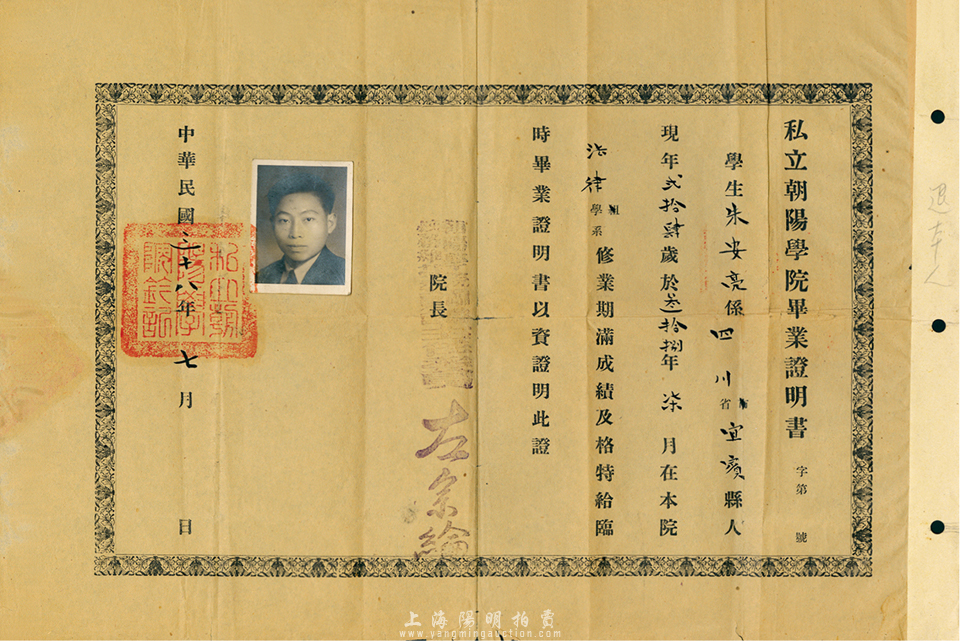 私立朝陽學院畢業證明書 字第 號
學生朱安亮係四川省宜賓縣人
現年弍拾肆歲於叁拾捌年柒月在本院
法律學系組修業期滿成績及格特給臨
時畢業證明書以資證明此證
院長
左宗綸
中華民國三十八年七月 日
私立朝陽學院鈐記
退本人
上海陽明拍賣
www.yangmingauction.com